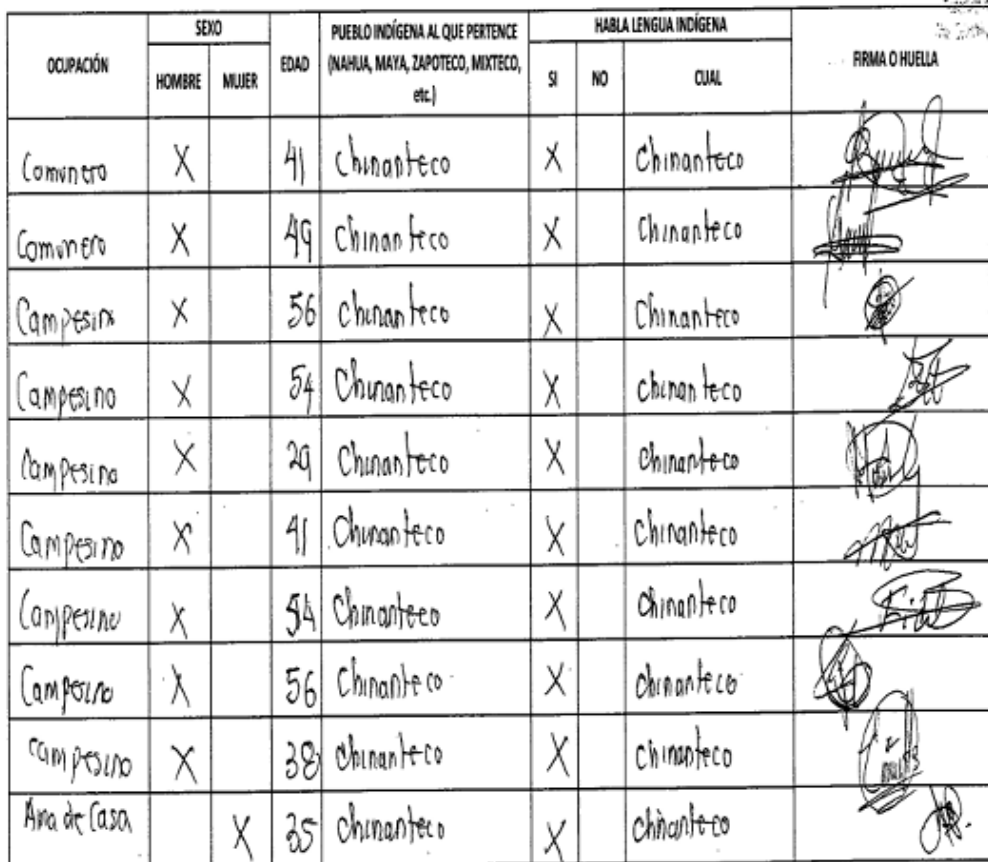 OCUPACIÓN SEXO EDAD PUEBLO INDÍGENA AL QUE PERTENCE (NAHUA, MAYA, ZAPOTECO, MIXTECO, etc.) HABLA LENGUA INDÍGENA FIRMA O HUELLA
HOMBRE MUJER SI NO CUAL
Comunero X 41 Chinanteco X Chinanteco
Comunero X 49 Chinanteco X Chinanteco
Campesino X 56 Chinanteco X Chinanteco
Campesino X 54 Chinanteco X chinanteco
Campesino X 29 Chinanteco X Chinanteco
Campesino X 41 Chinanteco X Chinanteco
Campesino X 54 Chinanteco X Chinanteco
Campesino X 56 Chinanteco X chinanteco
campesino X 38 Chinanteco X chinanteco
Ama de Casa X 35 Chinanteco X chinanteco